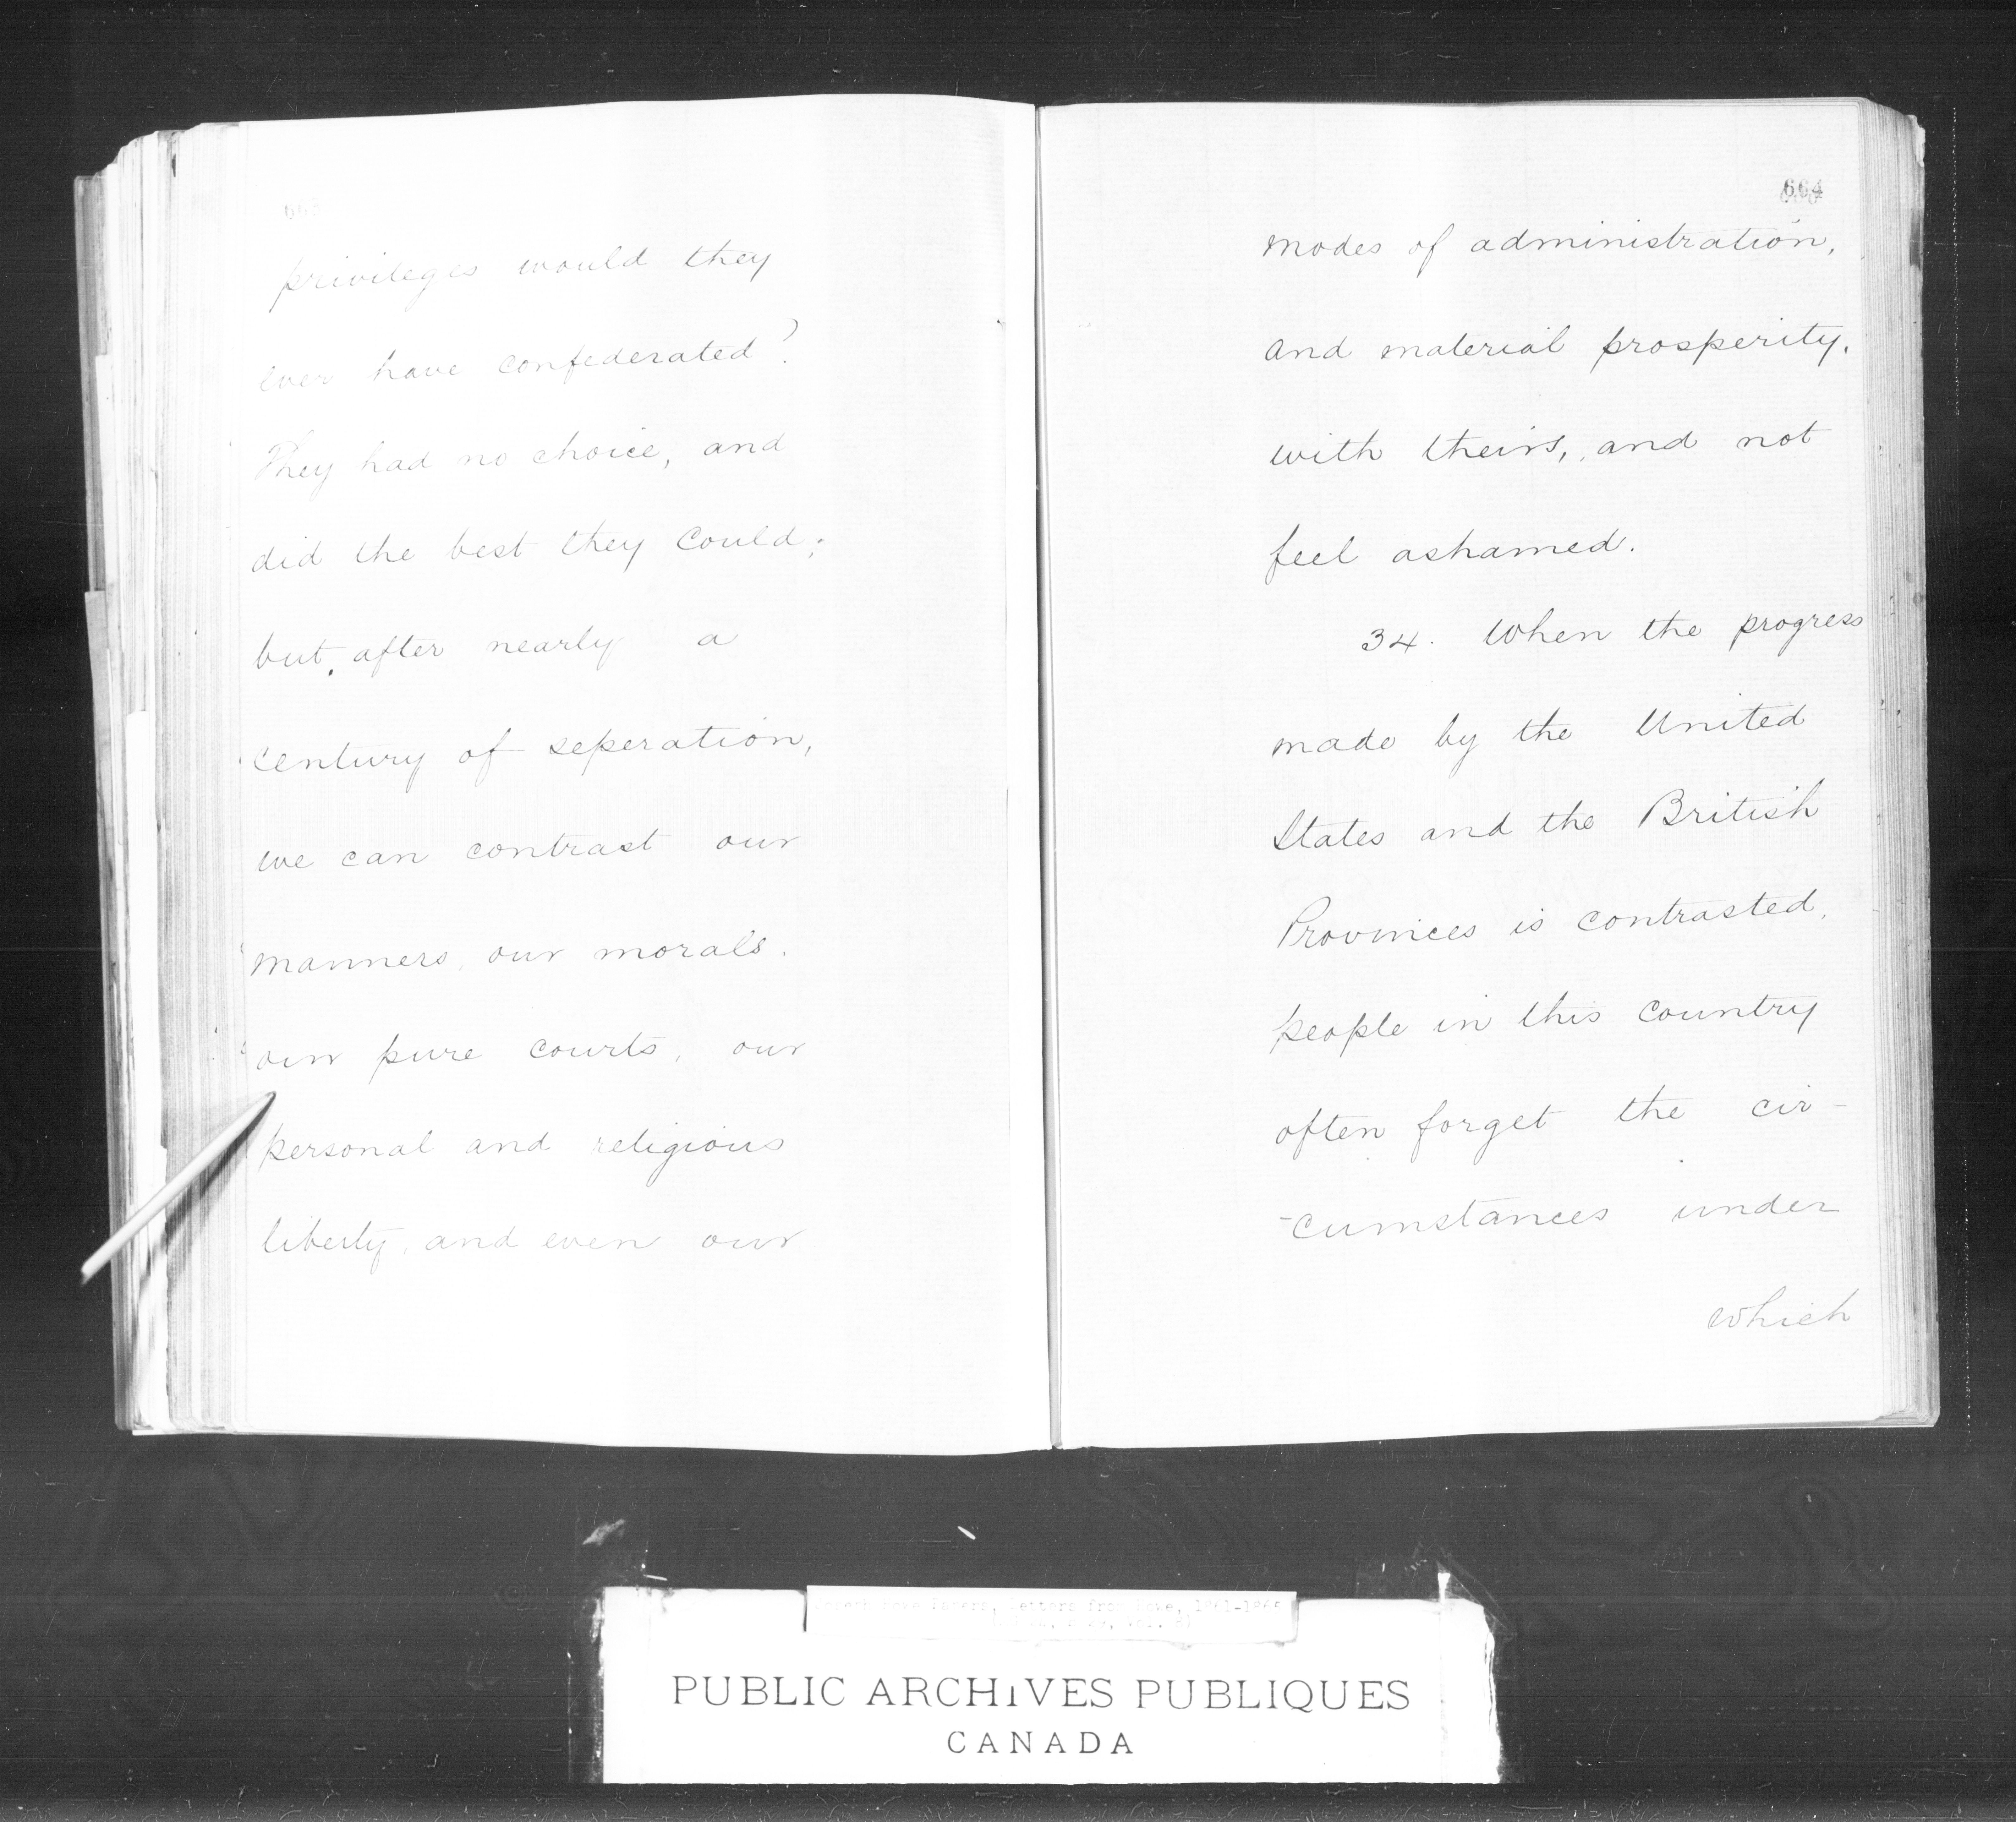 privileges would they
ever have confederated?
They had no choice, and
did the best they could;
but, after nearly a
century of seperation,
we can contrast our
manners, our morals,
our pure courts, our
personal and religious
liberty, and even our
664
modes of administration,
and material prosperity,
with theirs, and not
feel ashamed.
34. When the progress
made by the United
States and the British
Provinces is contrasted,
people in this country
often forget the cir-
-cumstances under
which
Letters from Howe, 1861-1865
PUBLIC ARCHIVES PUBLIQUES
CANADA